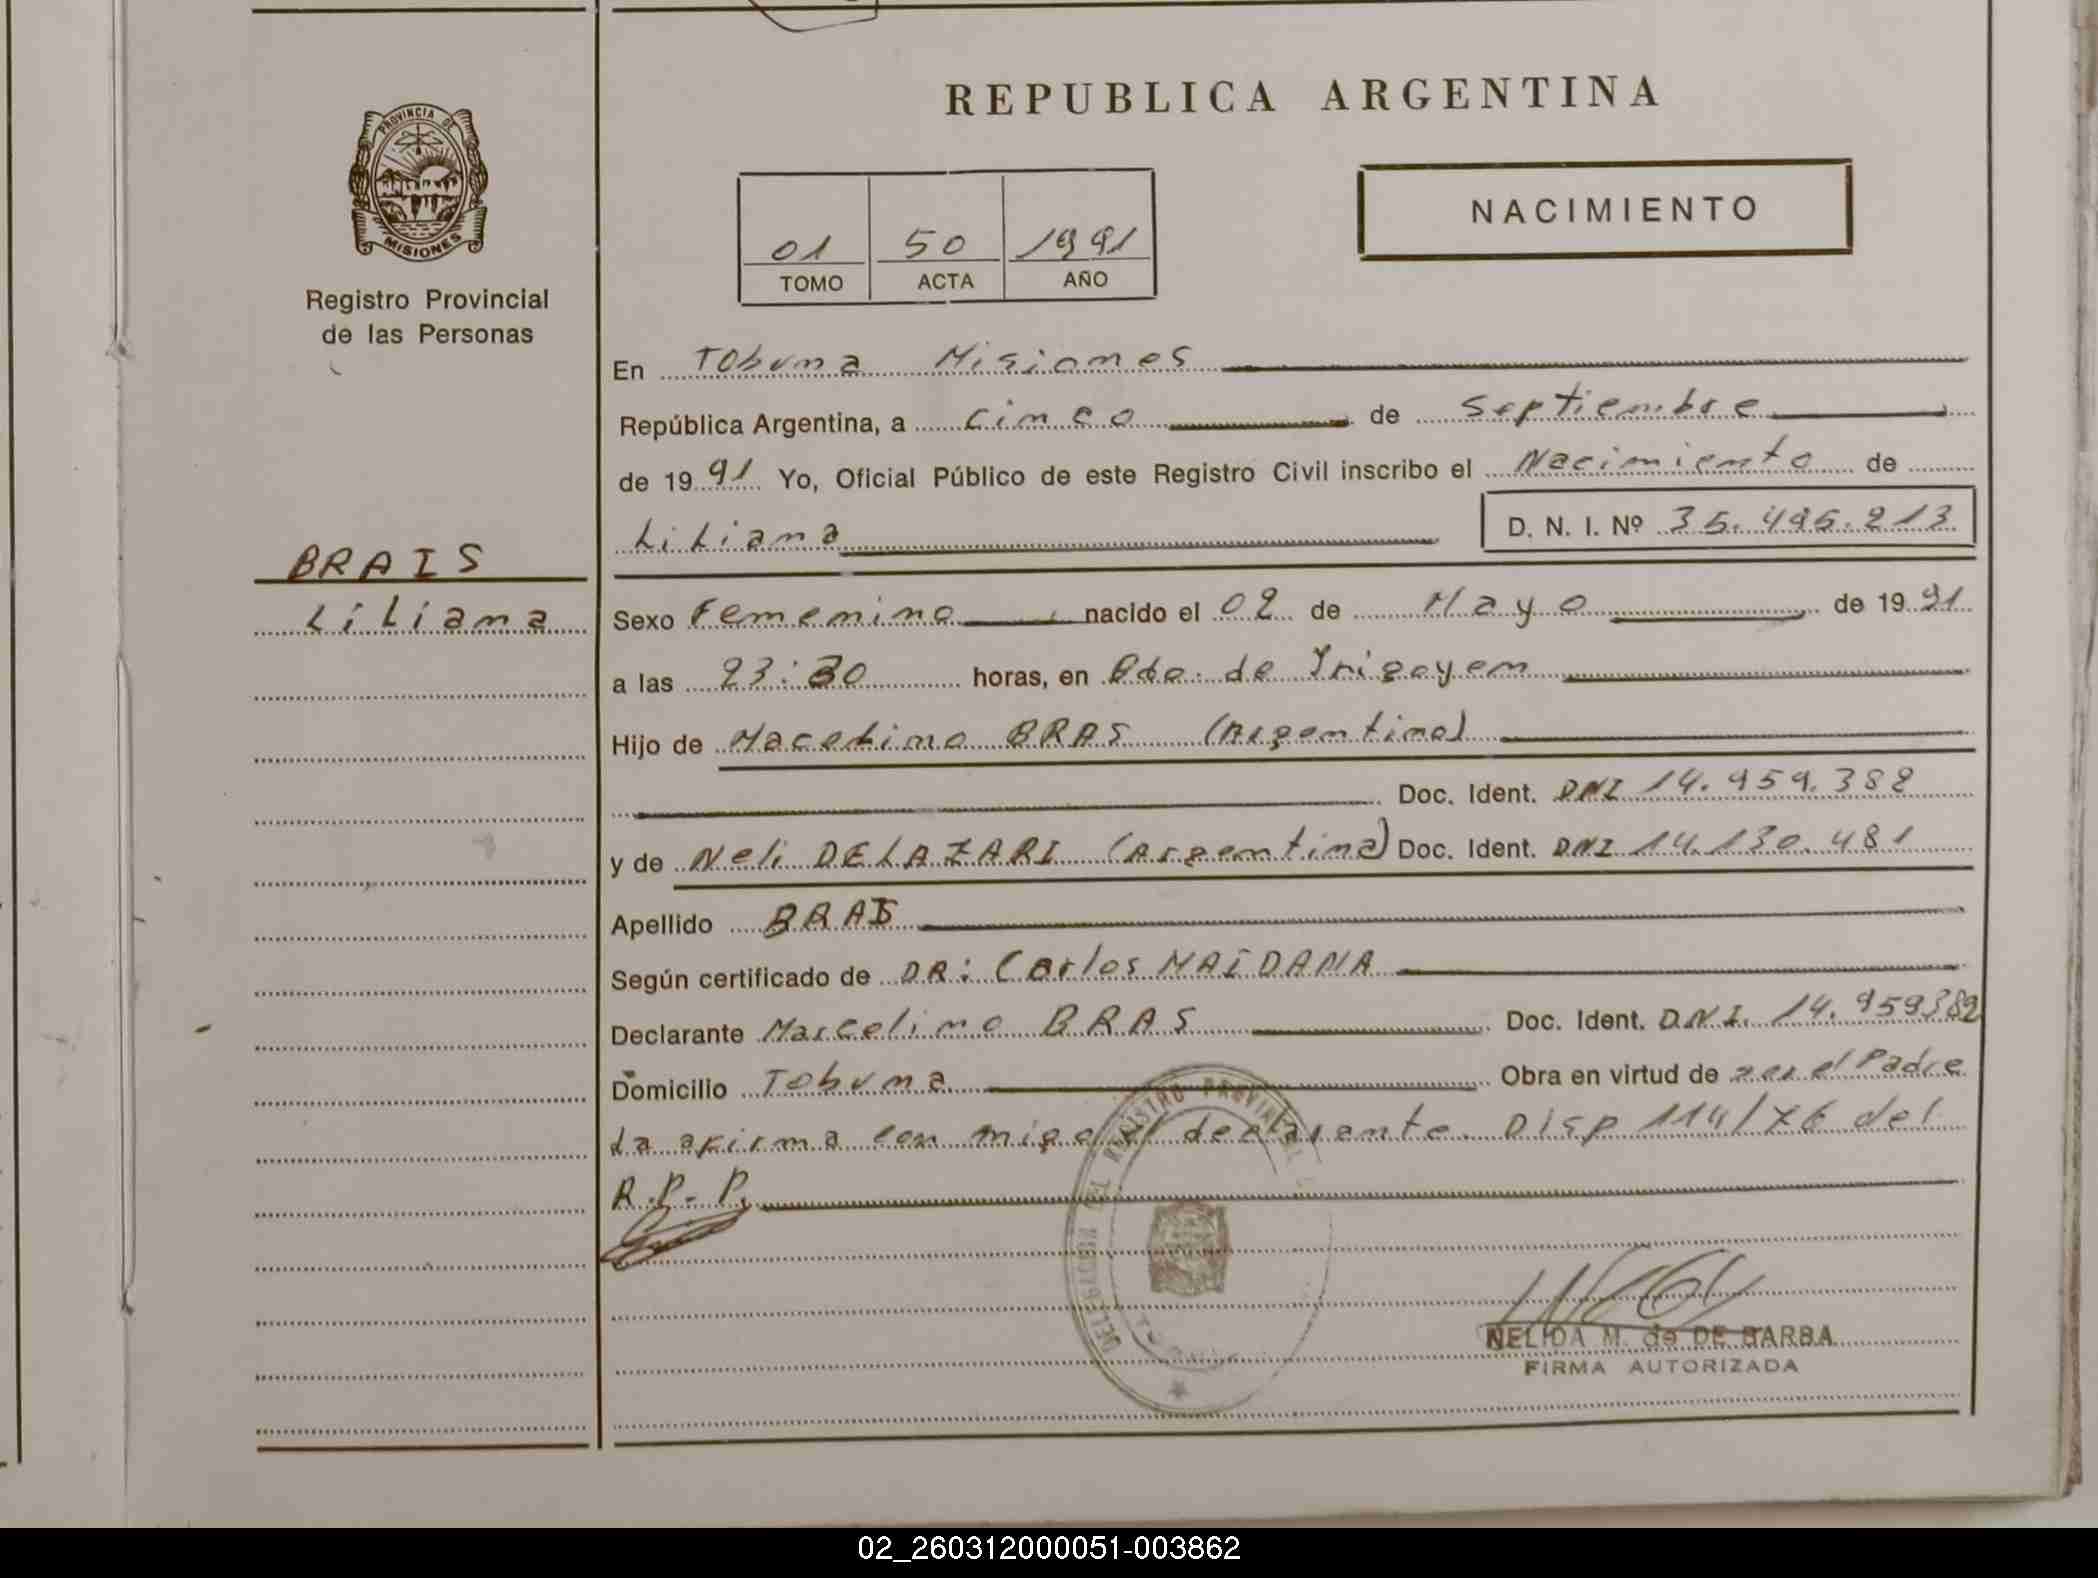 REPUBLICA ARGENTINA
PROVINCIA DE
MISIONES
Registro Provincial
de las Personas
01 50 1991
TOMO ACTA AÑO
NACIMIENTO
En Tobuna Misiones
República Argentina, a cinco de Septiembre
de 1991 Yo, Oficial Público de este Registro Civil inscribo el Nacimiento de
Liliana D. N. I. Nº 35.495.213
BRAIS
Liliana
Sexo Femenino nacido el 02 de Mayo de 1991
a las 23:30 horas, en Bdo. de Irigoyen
Hijo de Marcelino BRAS (Argentino)
Doc. Ident. DNI 14.959.382
y de Neli DELAZARI (Argentina) Doc. Ident. DNI 14.130.481
Apellido BRAIS
Según certificado de DR: Carlos MAIDANA
Declarante Marcelino BRAS Doc. Ident. D.N.I. 14.959382
Domicilio Tobuna Obra en virtud de ser el Padre
La afirma con migo el declarante. Disp 114/76 del
R.P.P.
DELEGACION DEL REGISTRO PROVINCIAL
NELIDA M. de DE BARBA
FIRMA AUTORIZADA
02_260312000051-003862